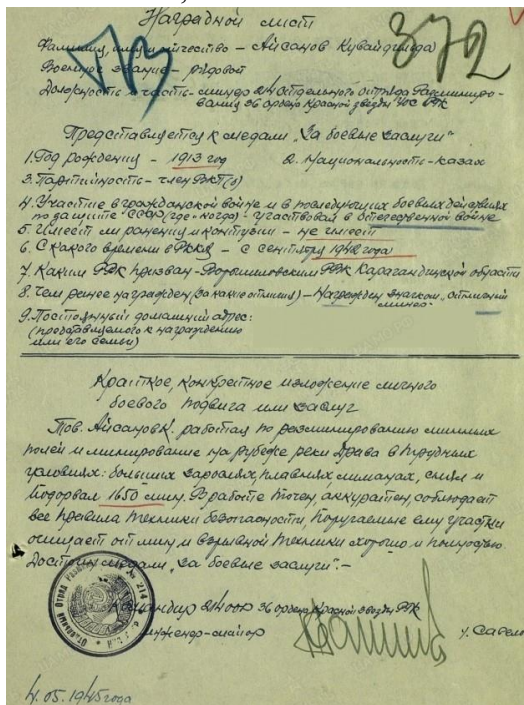 Наградной лист
372
Фамилия, имя и отчество – Айсанов Кувайдилда
Военное звание – рядовой
Должность и часть – минер 214 отдельного отряда Разминиро-
вания 36 ордена Красной звезды УОС РГК
Представляется к медали „За боевые заслуги"
1. Год рождения – 1913 год 2. Национальность – казах
3. Партийность – член ВКП(б)
4. Участие в гражданской войне и в последующих боевых действиях
по защите СССР (где и когда) – участвовал в отечественной войне
5. Имеет ли ранения и контузии – не имеет
6. С какого времени в РККА – с сентября 1942 года
7. Каким РВК призван – Ворошиловским РВК Карагандинской области
8. Чем ранее награжден (за какие отличия) – Награжден значком „отличный
минер"
9. Постоянный домашний адрес:
(представляемого к награждению
или его семьи)
Краткое, конкретное изложение личного
боевого подвига или заслуг
Тов. Айсанов К. работая по разминированию минных
полей и минирование на рубеже реки Драва в трудных
условиях: больших зарослях, плавнях, лиманах, снял и
подорвал 1650 мин. В работе точен, аккуратен, соблюдает
все правила техники безопасности, Поручаемые ему участки
очищает от мин и взрывной техники хорошо и полностью
Достоин медали „За боевые заслуги".–
Командир 214 оор 36 ордена Красной звезды РГК
инженер-майор
4.05.1945 года